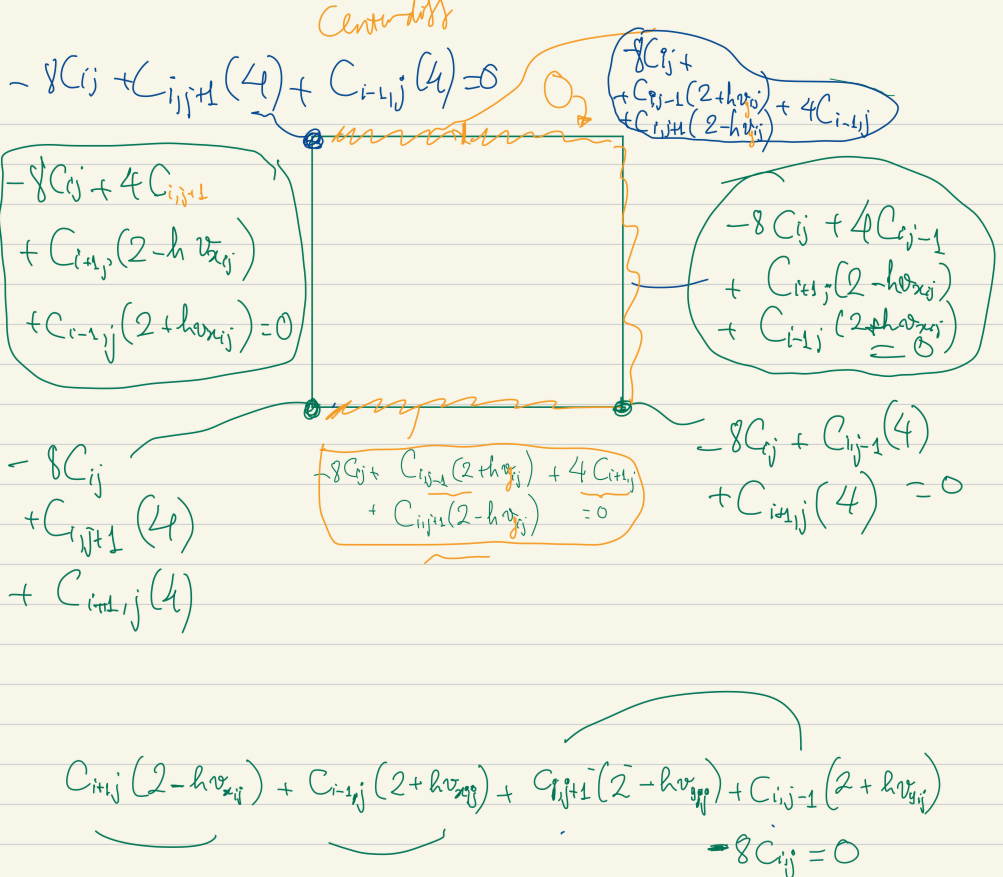 Center diff
- 8Cij + Ci,j+1 (4) + Ci-1,j (4) = 0
-8Cij +
+ Ci,j-1 (2+hvyij) + 4Ci-1,j
+ Ci,j+1 (2-hvyij)
-8Cij + 4Ci,j+1
+ Ci+1,j (2-h vxij)
+ Ci-1,j (2+hvxij) = 0
-8Cij + 4Ci,j-1
+ Ci+1,j (2-hvxij)
+ Ci-1,j (2+hvxij)
= 0
- 8Cij
+ Ci,j+1 (4)
+ Ci+1,j (4)
-8Cij + Ci,j-1 (2+hvyij) + 4Ci+1,j
+ Ci,j+1 (2-hvyij) = 0
- 8Cij + Ci,j-1 (4)
+ Ci+1,j (4) = 0
Ci+1,j (2-hvxij) + Ci-1,j (2+hvxij) + Ci,j+1 (2-hvyij) + Ci,j-1 (2+hvyij)
-8Ci,j = 0